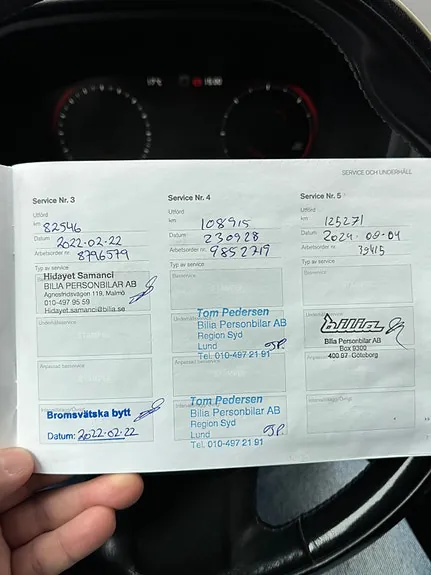 17°C
15:00
SERVICE OCH UNDERHÅLL
Service Nr. 3
Utförd
km 82546
Datum 2022-02-22
Arbetsorder nr. 8796579
Typ av service
Hidayet Samanci
BILIA PERSONBILAR AB
Agnesfridsvägen 119, Malmö
010-497 95 59
Hidayet.Samanci@bilia.se
Underhållsservice
Anpassad service
Bromsvätska bytt
Datum: 2022-02-22
Service Nr. 4
Utförd
km 108915
Datum 230928
Arbetsorder nr. 9852719
Typ av service
Basservice
Tom Pedersen
Bilia Personbilar AB
Region Syd
Lund
Tel. 010-497 21 91
Tom Pedersen
Bilia Personbilar AB
Region Syd
Lund
Tel. 010-497 21 91
Service Nr. 5
Utförd
km 125271
Datum 2024-09-04
Arbetsorder nr. 39415
Typ av service
Basservice
bilia
Bilia Personbilar AB
Box 9300
400 97 Göteborg
Anpassad service